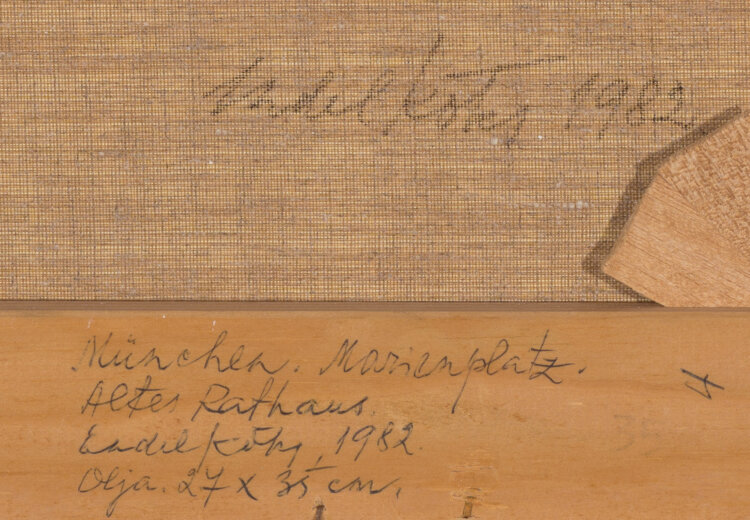 Endel Kõks 1982
München. Marienplatz.
Altes Rathaus.
Endel Kõks, 1982.
Olja. 27 x 35 cm.
4